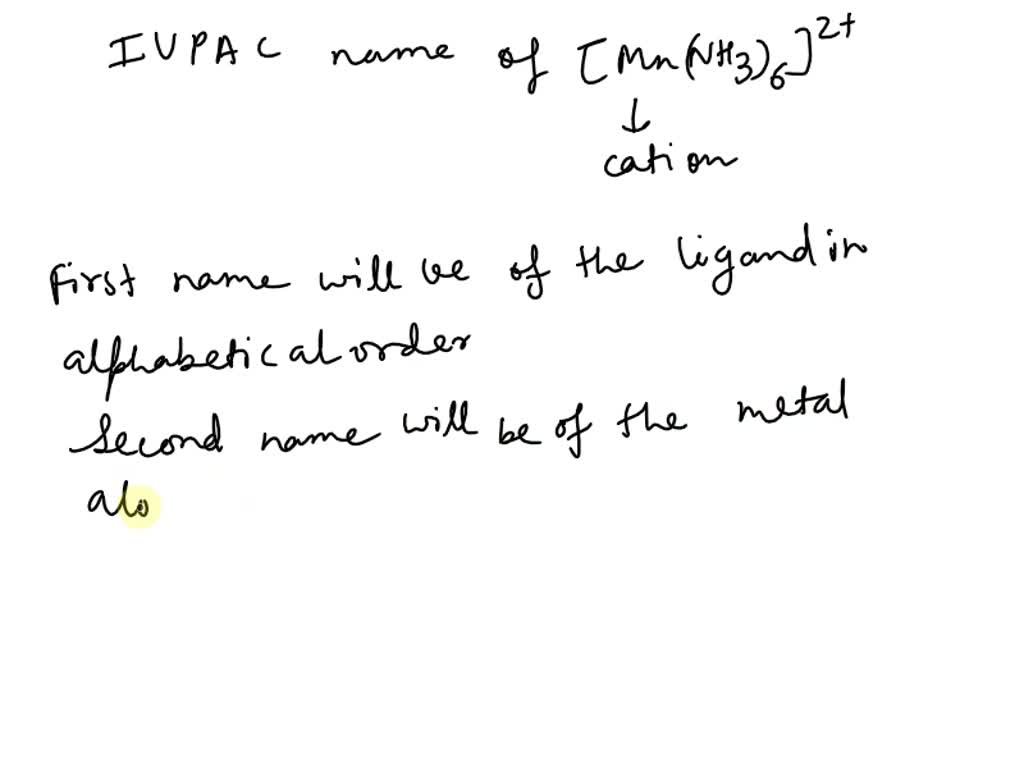 IUPAC name of [Mn(NH3)6]2+
↓
cation
First name will be of the ligand in
alphabetical order
Second name will be of the metal
alo